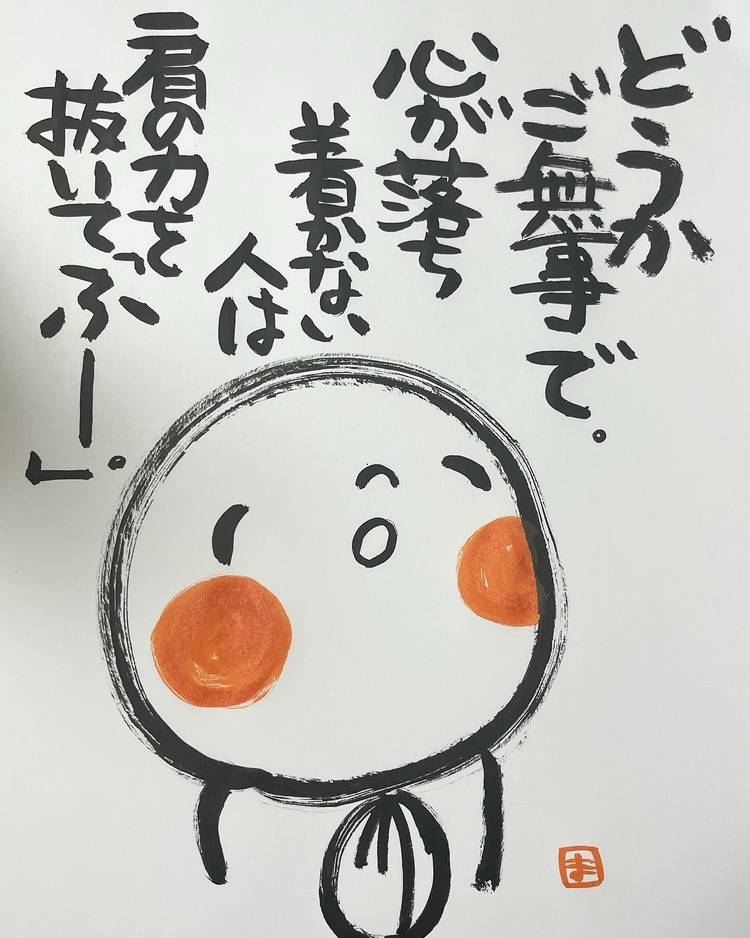 どうか
ご無事で。
心が落ち
着かない
人は
肩の力を
抜いて「ふー」。
ま